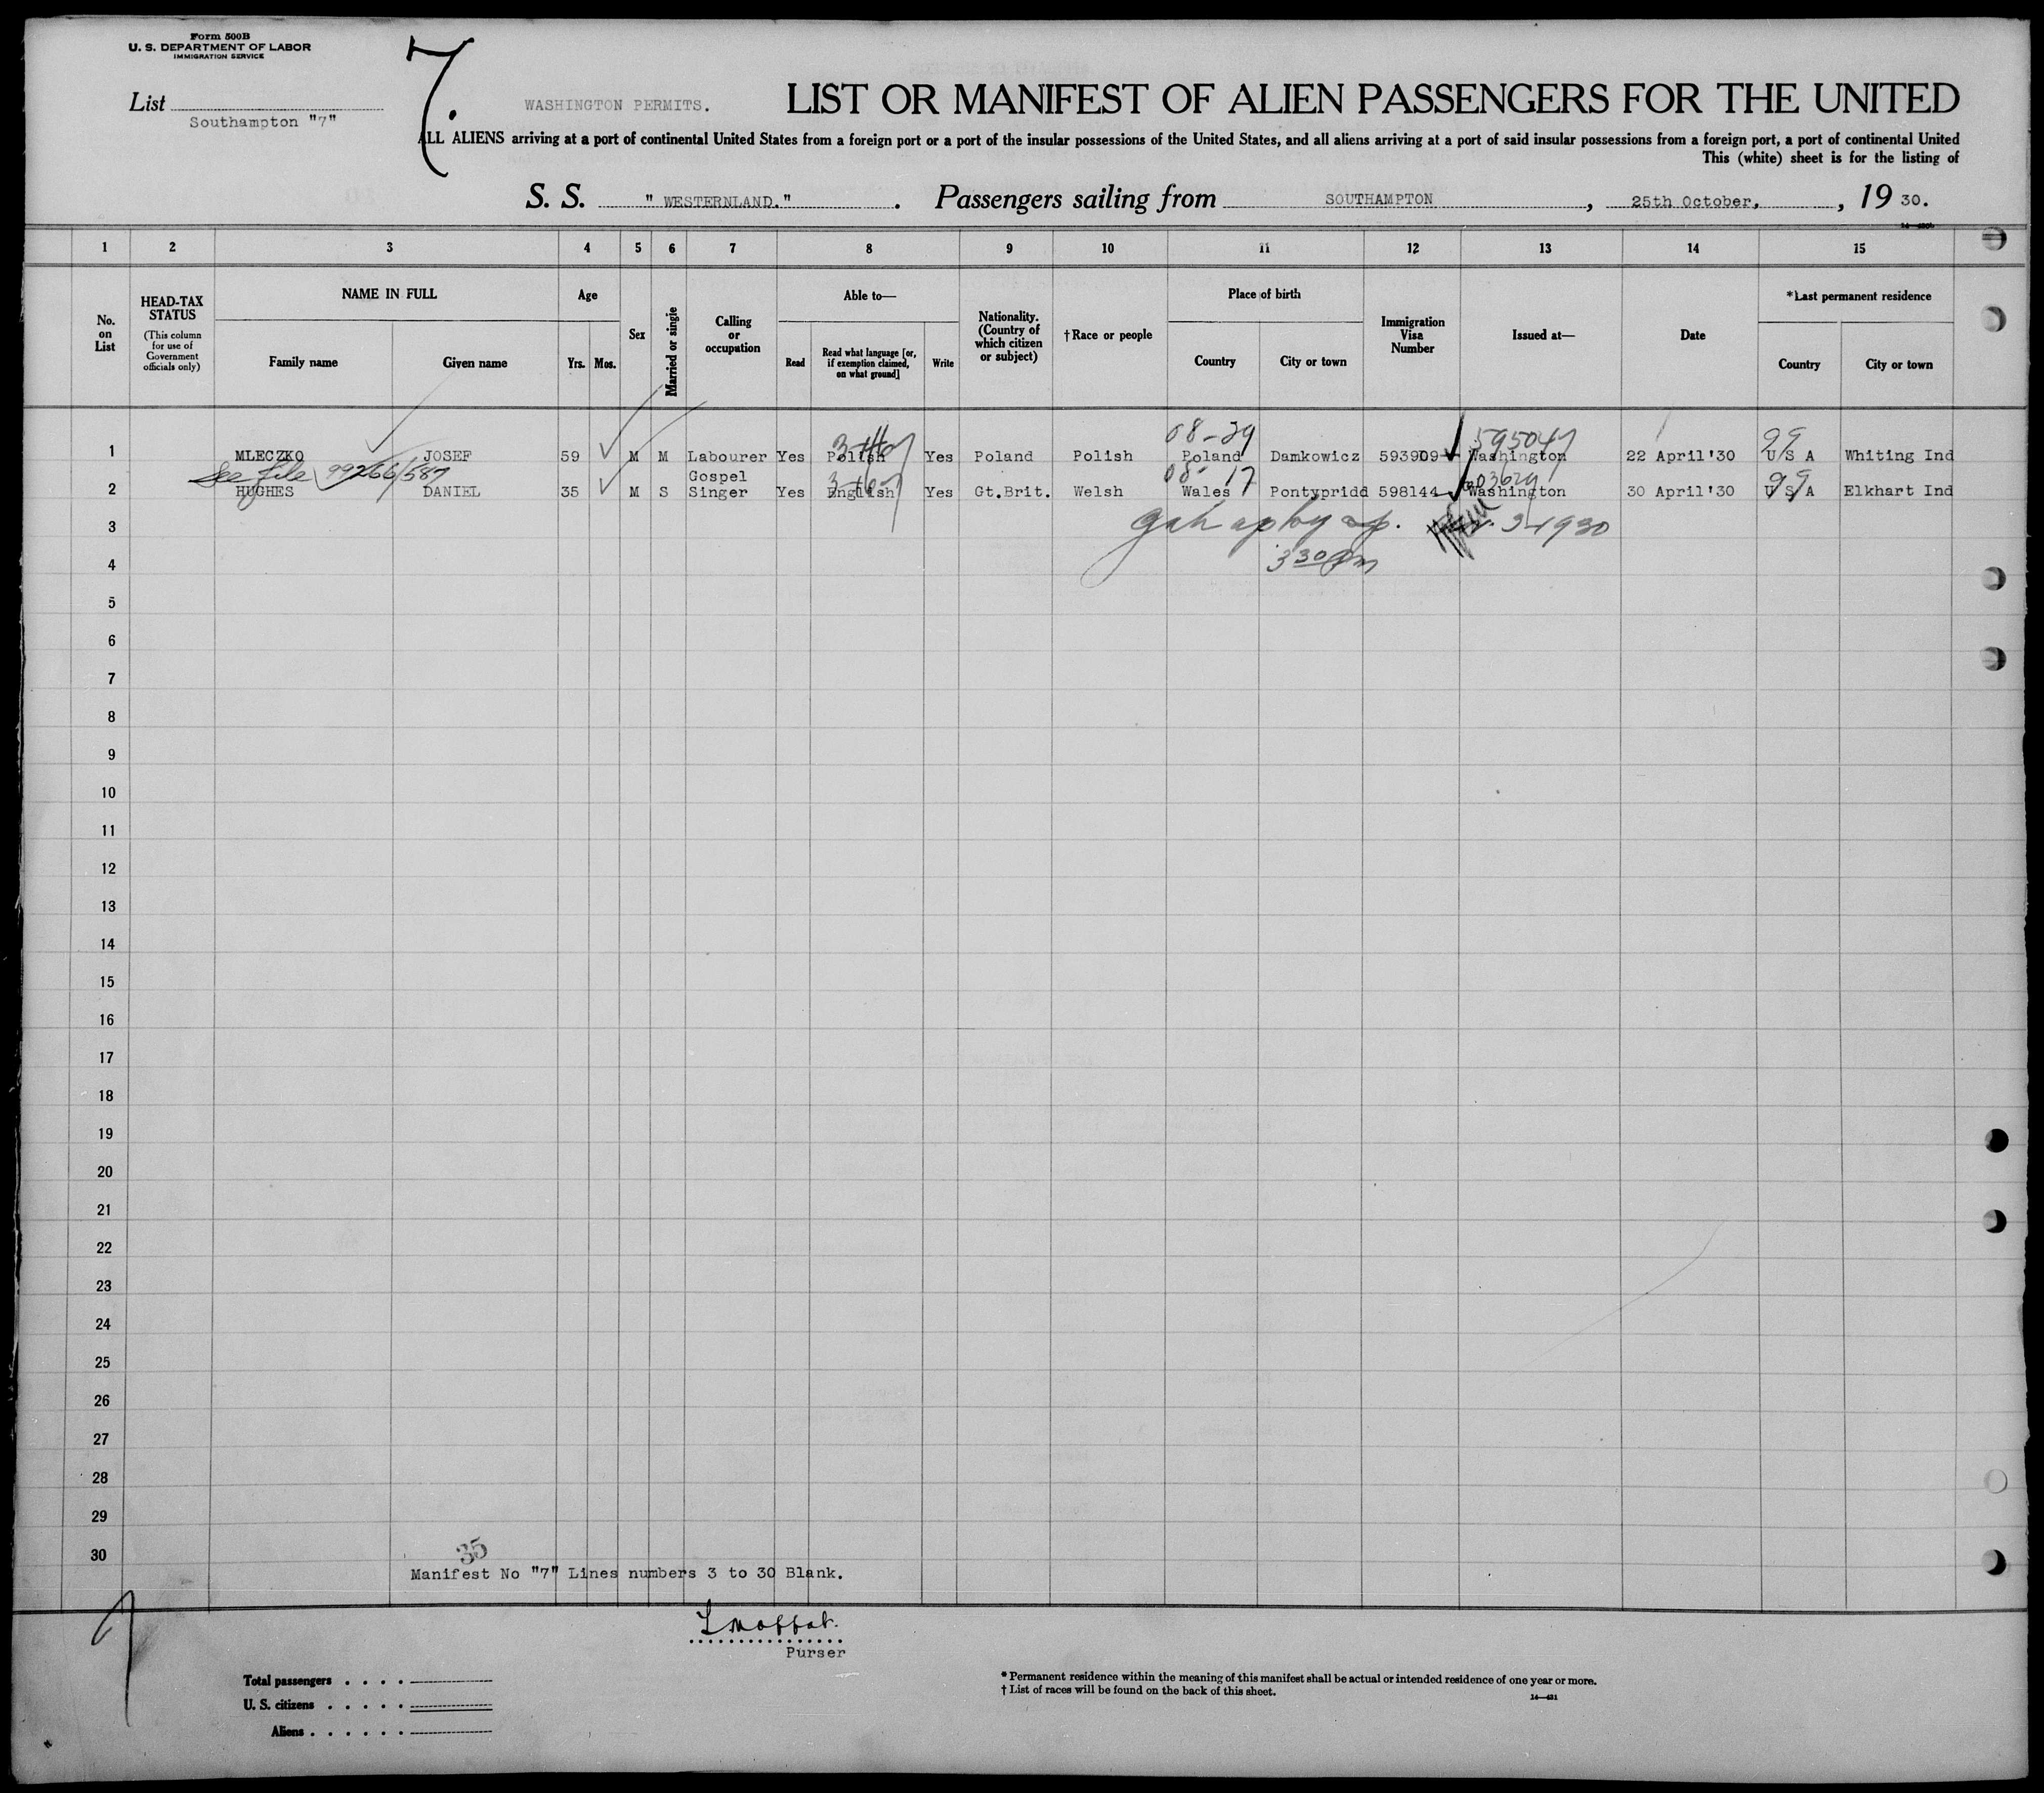 Form 500B
U. S. DEPARTMENT OF LABOR
IMMIGRATION SERVICE
7.
List
Southampton "7"
WASHINGTON PERMITS.
LIST OR MANIFEST OF ALIEN PASSENGERS FOR THE UNITED
ALL ALIENS arriving at a port of continental United States from a foreign port or a port of the insular possessions of the United States, and all aliens arriving at a port of said insular possessions from a foreign port, a port of continental United
This (white) sheet is for the listing of
S. S. " WESTERNLAND." . Passengers sailing from SOUTHAMPTON , 25th October, , 19 30.
1 2 3 4 5 6 7 8 9 10 11 12 13 14 15
No. on List
HEAD-TAX STATUS
(This column for use of Government officials only)
NAME IN FULL
Family name Given name
Age
Yrs. Mos.
Sex
Married or single
Calling or occupation
Able to—
Read
Read what language [or, if exemption claimed, on what ground]
Write
Nationality. (Country of which citizen or subject)
† Race or people
Place of birth
Country City or town
Immigration Visa Number
Issued at—
Date
*Last permanent residence
Country City or town
08-29 595047 99
1 MLECZKO JOSEF 59 M M Labourer Yes Polish Yes Poland Polish Poland Damkowicz 593909 Washington 22 April'30 U S A Whiting Ind
See file 99266/587 08- 17 99
2 HUGHES DANIEL 35 M S Gospel Singer Yes English Yes Gt.Brit. Welsh Wales Pontypridd 598144 Washington 30 April'30 U S A Elkhart Ind
3 3-1930
4 3 30 pm
5
6
7
8
9
10
11
12
13
14
15
16
17
18
19
20
21
22
23
24
25
26
27
28
29
30
35
Manifest No "7" Lines numbers 3 to 30 Blank.
Moffat.
Purser
Total passengers . . . .
U. S. citizens . . . . .
Aliens . . . . . .
* Permanent residence within the meaning of this manifest shall be actual or intended residence of one year or more.
† List of races will be found on the back of this sheet.
14—421